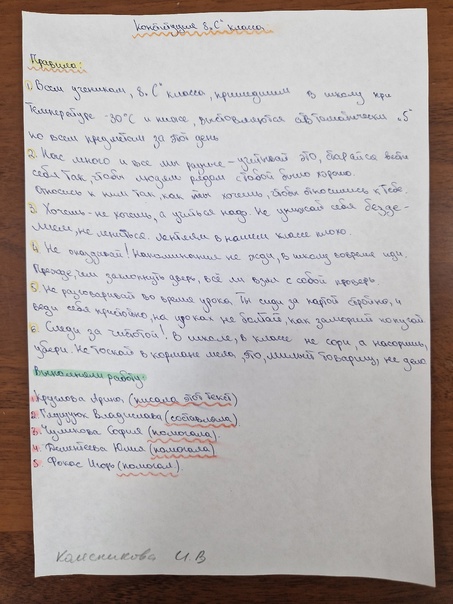 Конституция 8 "С" класса
Правила:
1. Всем ученикам, 8 "С" класса, пришедшим в школу при
температуре -30°С и ниже, выставляются автоматически "5"
по всем предметам за этот день
2. Нас много и все мы разные – учитывай это, старайся вести
себя так, чтобы людям рядом с тобой было хорошо.
Относись к ним так, как ты хочешь, чтобы относились к тебе
3. Хочешь - не хочешь, а учиться надо. Не унижай себя безде-
льем, не ленись. Лентяям в нашем классе плохо.
4. Не опаздывай! Напоминания не жди, в школу вовремя иди.
Прежде, чем захлопнуть дверь, всё ли взял с собой проверь
5. Не разговаривай во время урока. Ты сиди за партой стройно, и
веди себя спокойно, на уроках не болтай, как заморский попугай
6. Следи за чистотой! В школе, в классе не сори, а насоришь,
убери. Не таскай в кармане мела, это, милый товарищ, не дело
Выполнили работу:
1. Круглова Арина (писала этот текст)
2. Владислава (составляла)
3. Чумикова София (помогала)
4. Дементеева Юлия (помогала)
5. Фокас Игорь (помогал)
Колесникова И.В